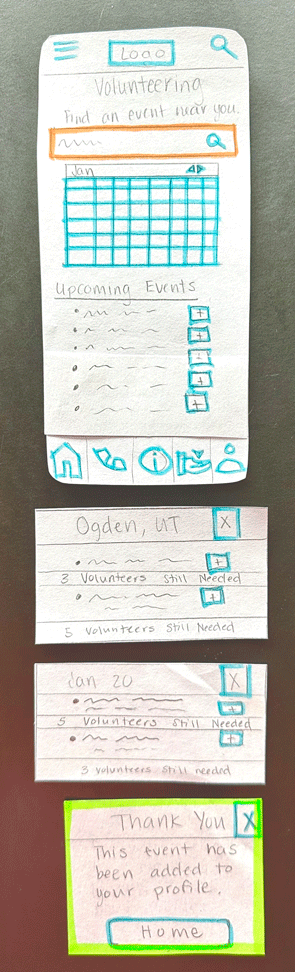 LOGO
Volunteering
Find an event near you.
Jan
Upcoming Events
Ogden, UT X
3 Volunteers Still Needed
5 Volunteers Still Needed
Jan 20 X
5 Volunteers Still Needed
3 Volunteers Still needed
Thank You X
This event has
been added to
your profile.
Home